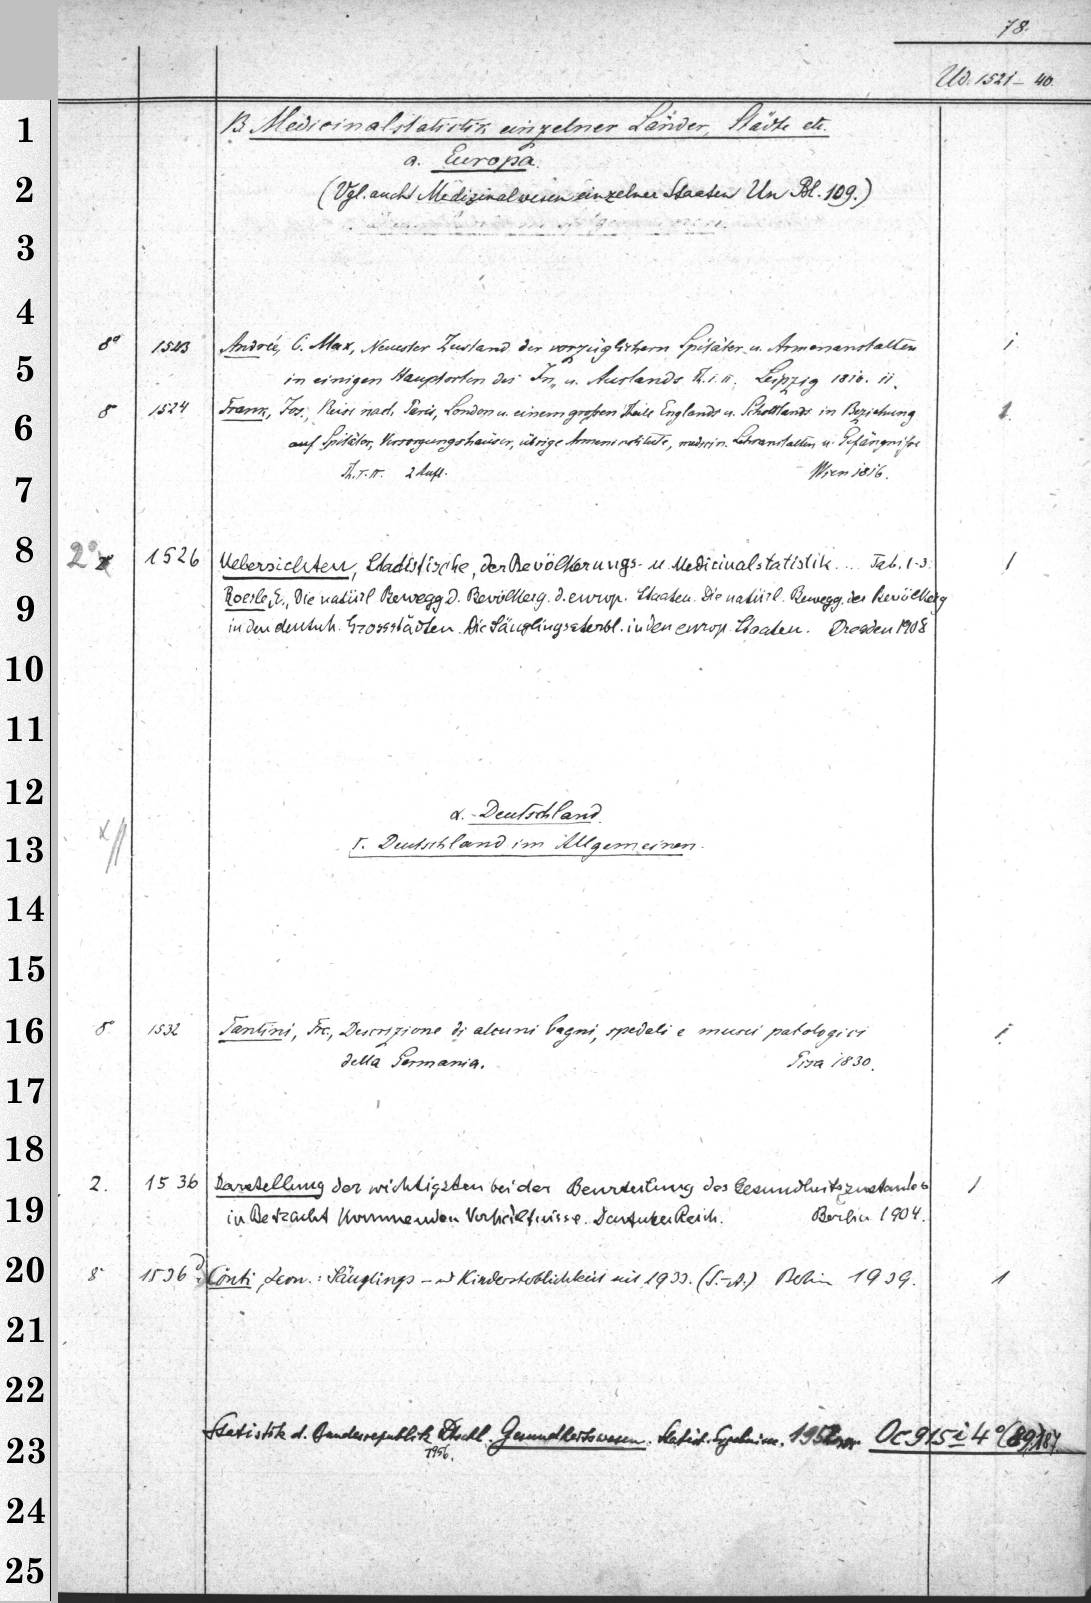 78.
Ud. 1521-40.
1
B. Medicinalstatistik einzelner Länder, Städte etc.
a. Europa.
2
(Vgl. auch Medizinalwesen einzelner Staaten Un Bl. 109.)
3
4
8° 1523 Andreé, C. Max, Neuester Zustand der vorzüglichern Spitäler u. Armenanstalten 1
5
in einigen Hauptorten des In- u. Auslands Th. I. II. Leipzig 1810. 11.
8° 1524 Frank, Jos., Reise nach Paris, London u. einem großen Theile Englands u. Schottlands in Beziehung 1.
6
auf Spitäler, Versorgungshäuser, übrige Armeninstitute, medicin. Lehranstalten u. Gefängnisse
Th. I. II. 2 Aufl. Wien 1816.
7
8
2° 1526 Uebersichten, Statistische, der Bevölkerungs- u. Medicinalstatistik.... Tab. 1-3. 1
9
Roesle, E., Die natürl Bewegg d. Bevölkerg. d. europ. Staaten. Die natürl. Bewegg. der Bevölkerg
in den deutsch. Grossstädten. Die Säuglingssterbl. in den europ. Staaten. Dresden 1908
10
11
12
α. Deutschland.
13
I. Deutschland im Allgemeinen.
14
15
16
8° 1532 Tantini, Frc., Descrizione di alcuni bagni, spedali e musei patologici 1.
della Germania. Pisa 1830.
17
18
2. 1536 Darstellung der wichtigsten bei der Beurteilung des Gesundheitszustandes 1
19
in Betracht kommenden Verhältnisse. Deutsches Reich. Berlin 1904.
20
8° 1536 Conti, Leon.: Säuglings- u. Kindersterblichkeit seit 1933. (S.-A.) Berlin 1939. 1
21
22
23
Statistik d. Bundesrepublik Dtschl. Gesundheitswesen. Statist. Ergebnisse. Oc 915 i 4° (89), 187
1956.
24
25